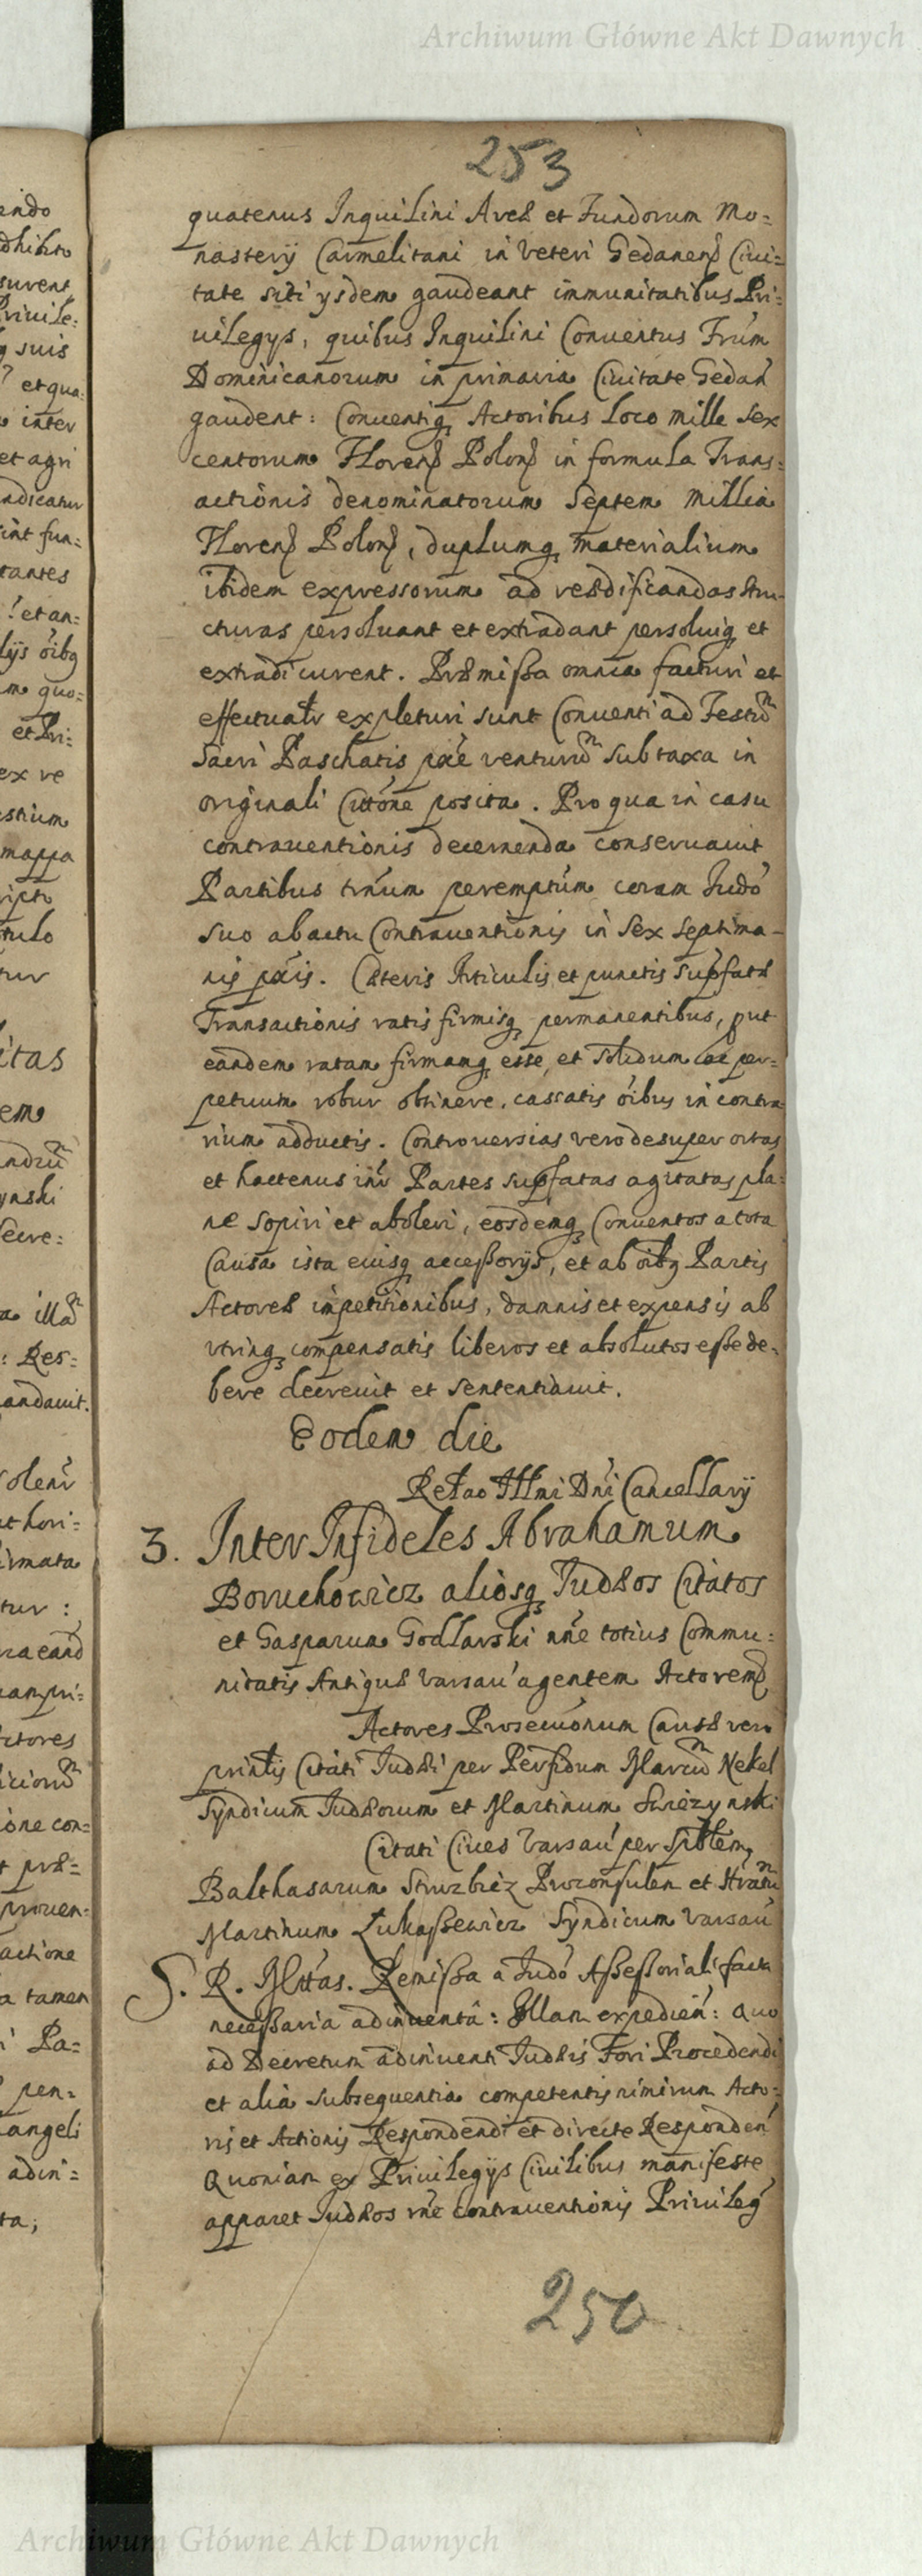 Archiwum Główne Akt Dawnych
253
quatenus Inquilini Areæ et Fundorum Mo=
nasterij Carmelitani in veteri Gedanens Ciui=
tate siti ysdem gaudeant immunitatibus Pri=
uilegys, quibus Inquilini Conventus Frum
Dominicanorum in primaria Ciuitate Gedan
gaudent: Conventiq Actoribus loco mille sex
centorum Florens Polons in formula Trans=
actionis denominatorum septem millia
Florens Polons, duplumq materialium
ibidem expressorum ad reædificandas stru=
cturas persoluant et extradant persoluiq et
extradi curent. Præmissa omnia facturi et
effectualr expleturi sunt Conuenti ad Festum
Sacri Paschatis pxe venturum sub taxa in
originali Cittone posita. Pro qua in casu
contrauentionis decernenda conseruauit
Partibus trnum peremptum coram Judo
suo ab actu Contrauentionis in sex septima-
nis pxis. Cæteris Articulis et punctis supfatæ
Transactionis ratis firmisq permanentibus, put
eandem ratam firmamq esse, et solidum ac per=
petuum robur obtinere, cassatis oibus in contra=
rium adductis. Controuersias vero desuper ortas
et hactenus intr Partes supfatas agitatas pla=
ne sopiri et aboleri, eosdemq Conuentos a tota
Causa ista eiusq accessorijs, et ab oibq Partis
Actoreæ impetitionibus, damnis et expensis ab
vtrinq compensatis liberos et absolutos esse de=
bere decreuit et sententiauit.
Eodem die
Relao Illmi Dni Cancellarij
3. Inter Infideles Abrahamum
Boruchowicz aliosq Judæos Citatos
et Gasparum Godlarski nne totius Commu=
nitatis Antiquæ Varsau agentem Actorem
Actores Prosecutionum Causæ vero
prinlis Citati Judæi per Perfidum Marcum Nekel
Syndicum Judæorum et Martinum
Citati Ciues Varsau per
Balthasarum Strurbicz Proconsulem et
Martinum Lukassewicz Syndicum Varsau
S. R. Mttas. Remissa a Judo Assessoriali facta
necessaria adinuenta: Illam expedien: Quo
ad Decretum adinuenti Judæis Fori Procedendi
et alia subsequentia competentis nimirum Acto=
ris et Actionis Respondendi et directe Responden
Quoniam ex Priuilegijs Ciuilibus manifeste
apparet Judæos rne contrauentionis Priuileg
250
Archiwum Główne Akt Dawnych